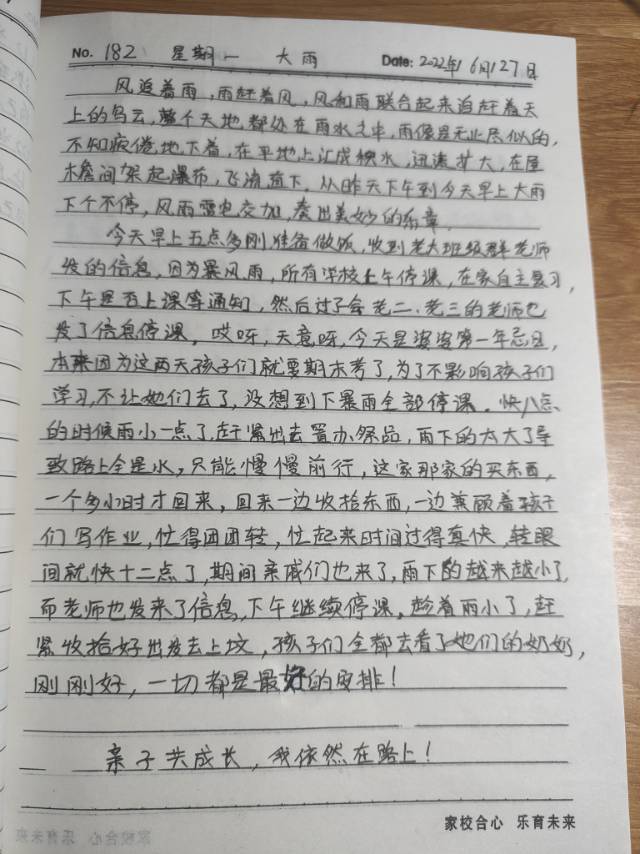 No. 182 星期一 大雨 Date: 2022年6月27日
风追着雨，雨赶着风，风和雨联合起来追赶着天
上的乌云，整个天地都处在雨水之中，雨像是无止尽似的，
不知疲倦地下着，在平地上汇成积水，迅速扩大，在屋
木檐间架起瀑布，飞流直下，从昨天下午到今天早上大雨
下个不停，风雨雷电交加，奏出美妙的乐章。
今天早上五点多刚准备做饭，收到老大班级群老师
发的信息，因为暴风雨，所有学校上午停课，在家自主复习，
下午是否上课等通知，然后过了会老二、老三的老师也
发了信息停课，哎呀，天意呀，今天是婆婆第一年忌日，
本来因为这两天孩子们就要期末考了，为了不影响孩子们
学习，不让她们去了，没想到下暴雨全部停课。快八点
的时候雨小一点了，赶紧出去置办祭品，雨下的太大了导
致路上全是水，只能慢慢前行，这家那家的买东西，
一个多小时才回来，回来一边收拾东西，一边兼顾着孩子
们写作业，忙得团团转，忙起来时间过得真快，转眼
间就快十二点了，期间亲戚们也来了，雨下的越来越小了，
而老师也发来了信息，下午继续停课，趁着雨小了，赶
紧收拾好出发去上坟，孩子们全都去看了她们的奶奶，
刚刚好，一切都是最好的安排！
亲子共成长，我依然在路上！
家校合心 乐育未来